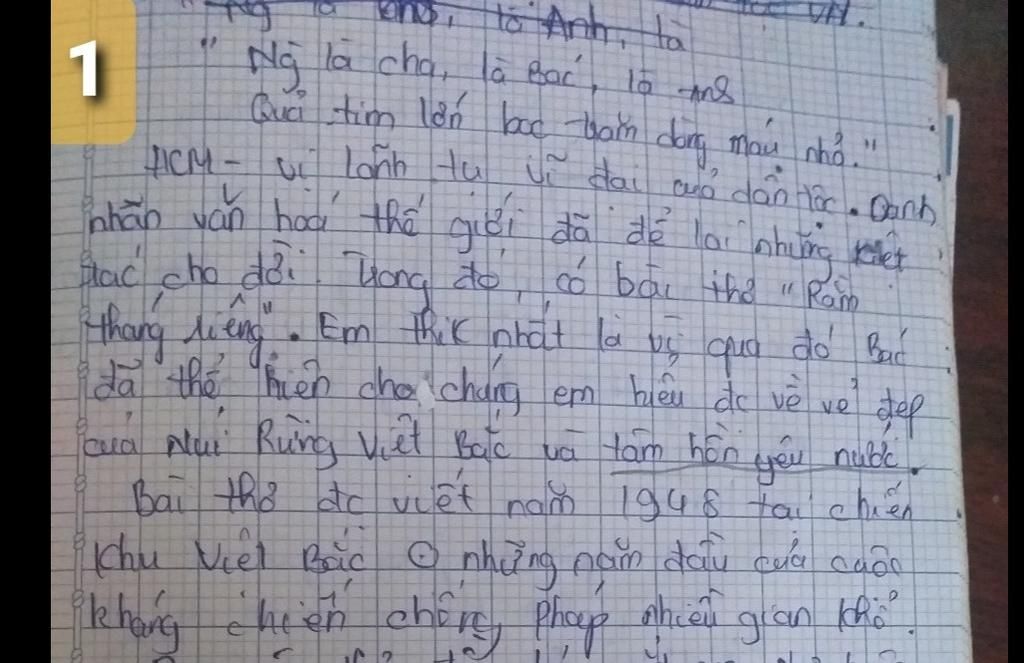 1
là Anh, là
VN.
"Ng là cha, là Bác, là Anh
Quả tim lớn bọc trăm dòng máu nhỏ."
HCM - vị lãnh tụ vĩ đại của dân tộc. Danh
nhân văn hoá thế giới đã để lại những kiệt
tác cho đời. Trong đó, có bài thơ "Rằm
tháng giêng". Em thík nhất là vì qua đó Bác
đã thể hiện cho chúng em hiểu đc về vẻ đẹp
của Núi Rừng Việt Bắc và tâm hồn yêu nước.
Bài thơ đc viết năm 1948 tại chiến
khu Việt Bắc ⊙ những năm đầu của cuộc
kháng chiến chống Pháp nhiều gian khổ.